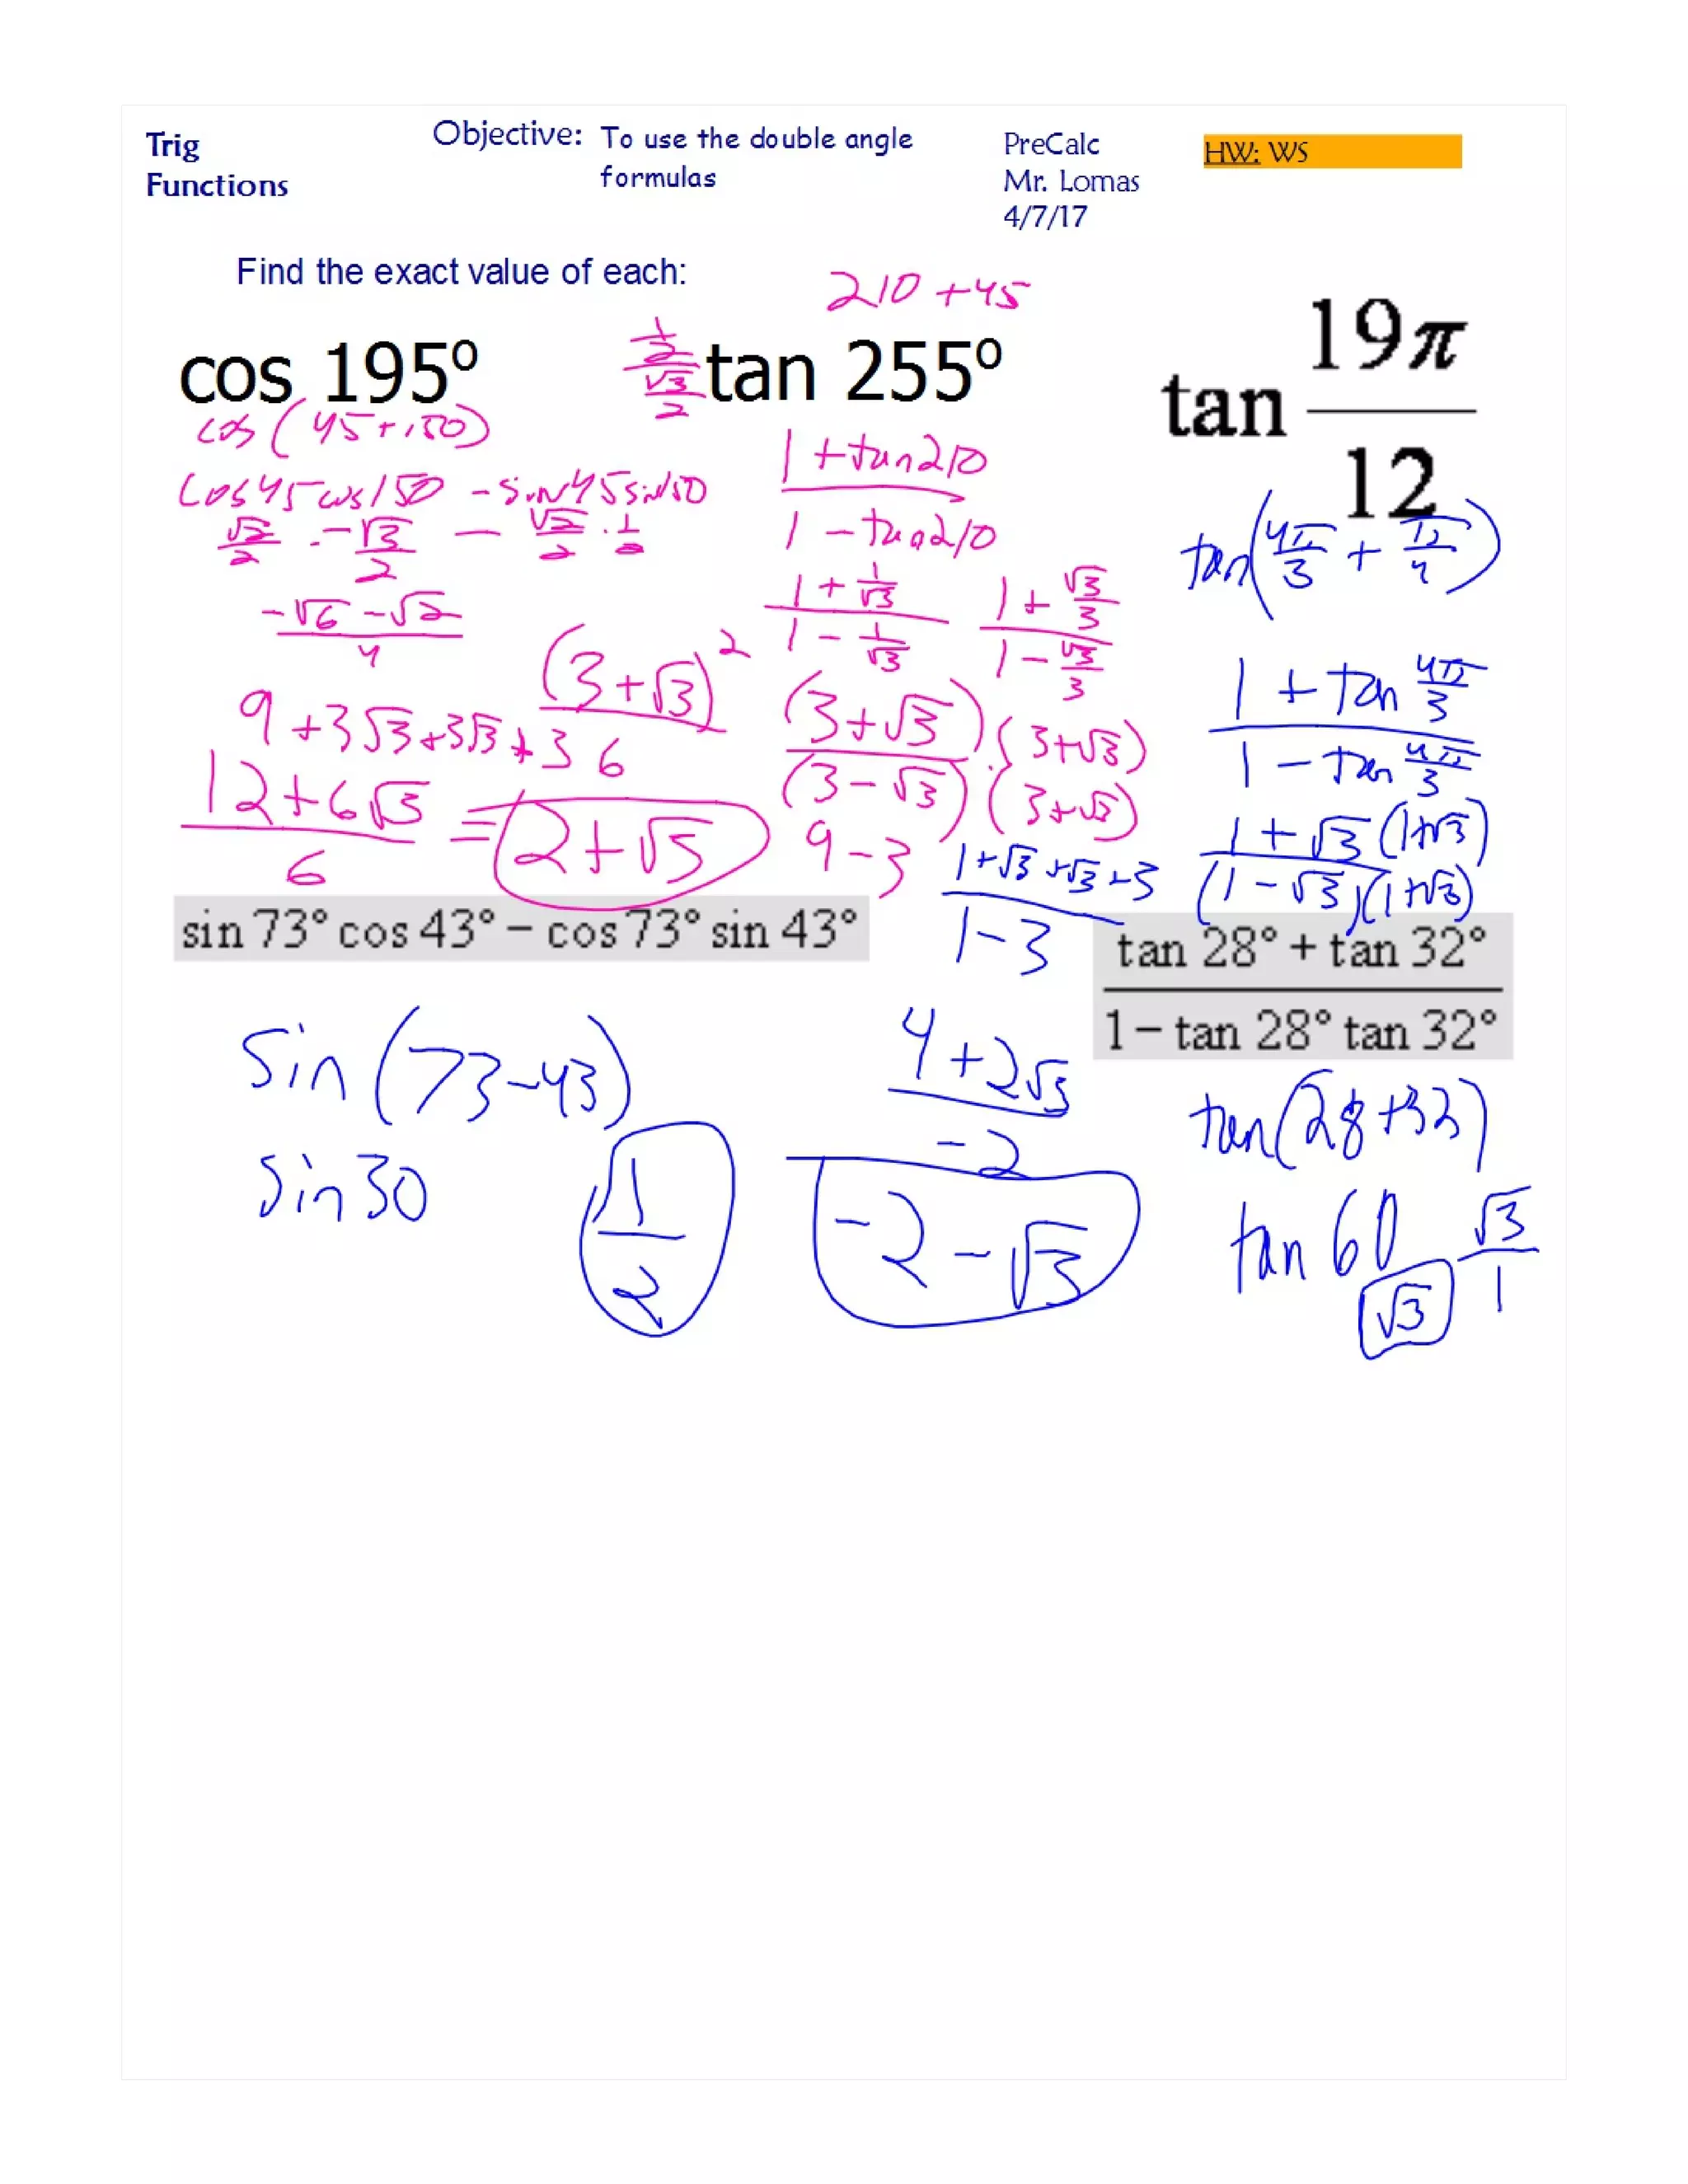 Trig
Functions
Objective: To use the double angle
formulas
PreCalc
Mr. Lomas
4/7/17
HW: WS
Find the exact value of each:
cos 195º
cos (45+150)
cos45cos150 - sin45sin150
√2/2 · -√3/2 - √2/2 · 1/2
-√6 - √2 / 4
210 + 45
1/2 / √3/2
tan 255º
1 + tan210 / 1 - tan210
1 + 1/√3 / 1 - 1/√3
1 + √3/3 / 1 - √3/3
(3+√3) / (3-√3) · (3+√3) / (3+√3)
9 - 3
(3+√3)² / 6
9 + 3√3 + 3√3 + 3
12 + 6√3 / 6 = 2+√3
tan 19π/12
tan(4π/3 + π/4)
1 + tan 4π/3 / 1 - tan 4π/3
1 + √3 (1+√3) / (1-√3)(1+√3)
1+√3+√3+3 / 1-3
4+2√3 / -2
-2 - √3
sin 73° cos 43° − cos 73° sin 43°
Sin (73-43)
Sin 30
1/2
tan 28° + tan 32° / 1 − tan 28° tan 32°
tan(28+32)
tan 60
√3/1
√3